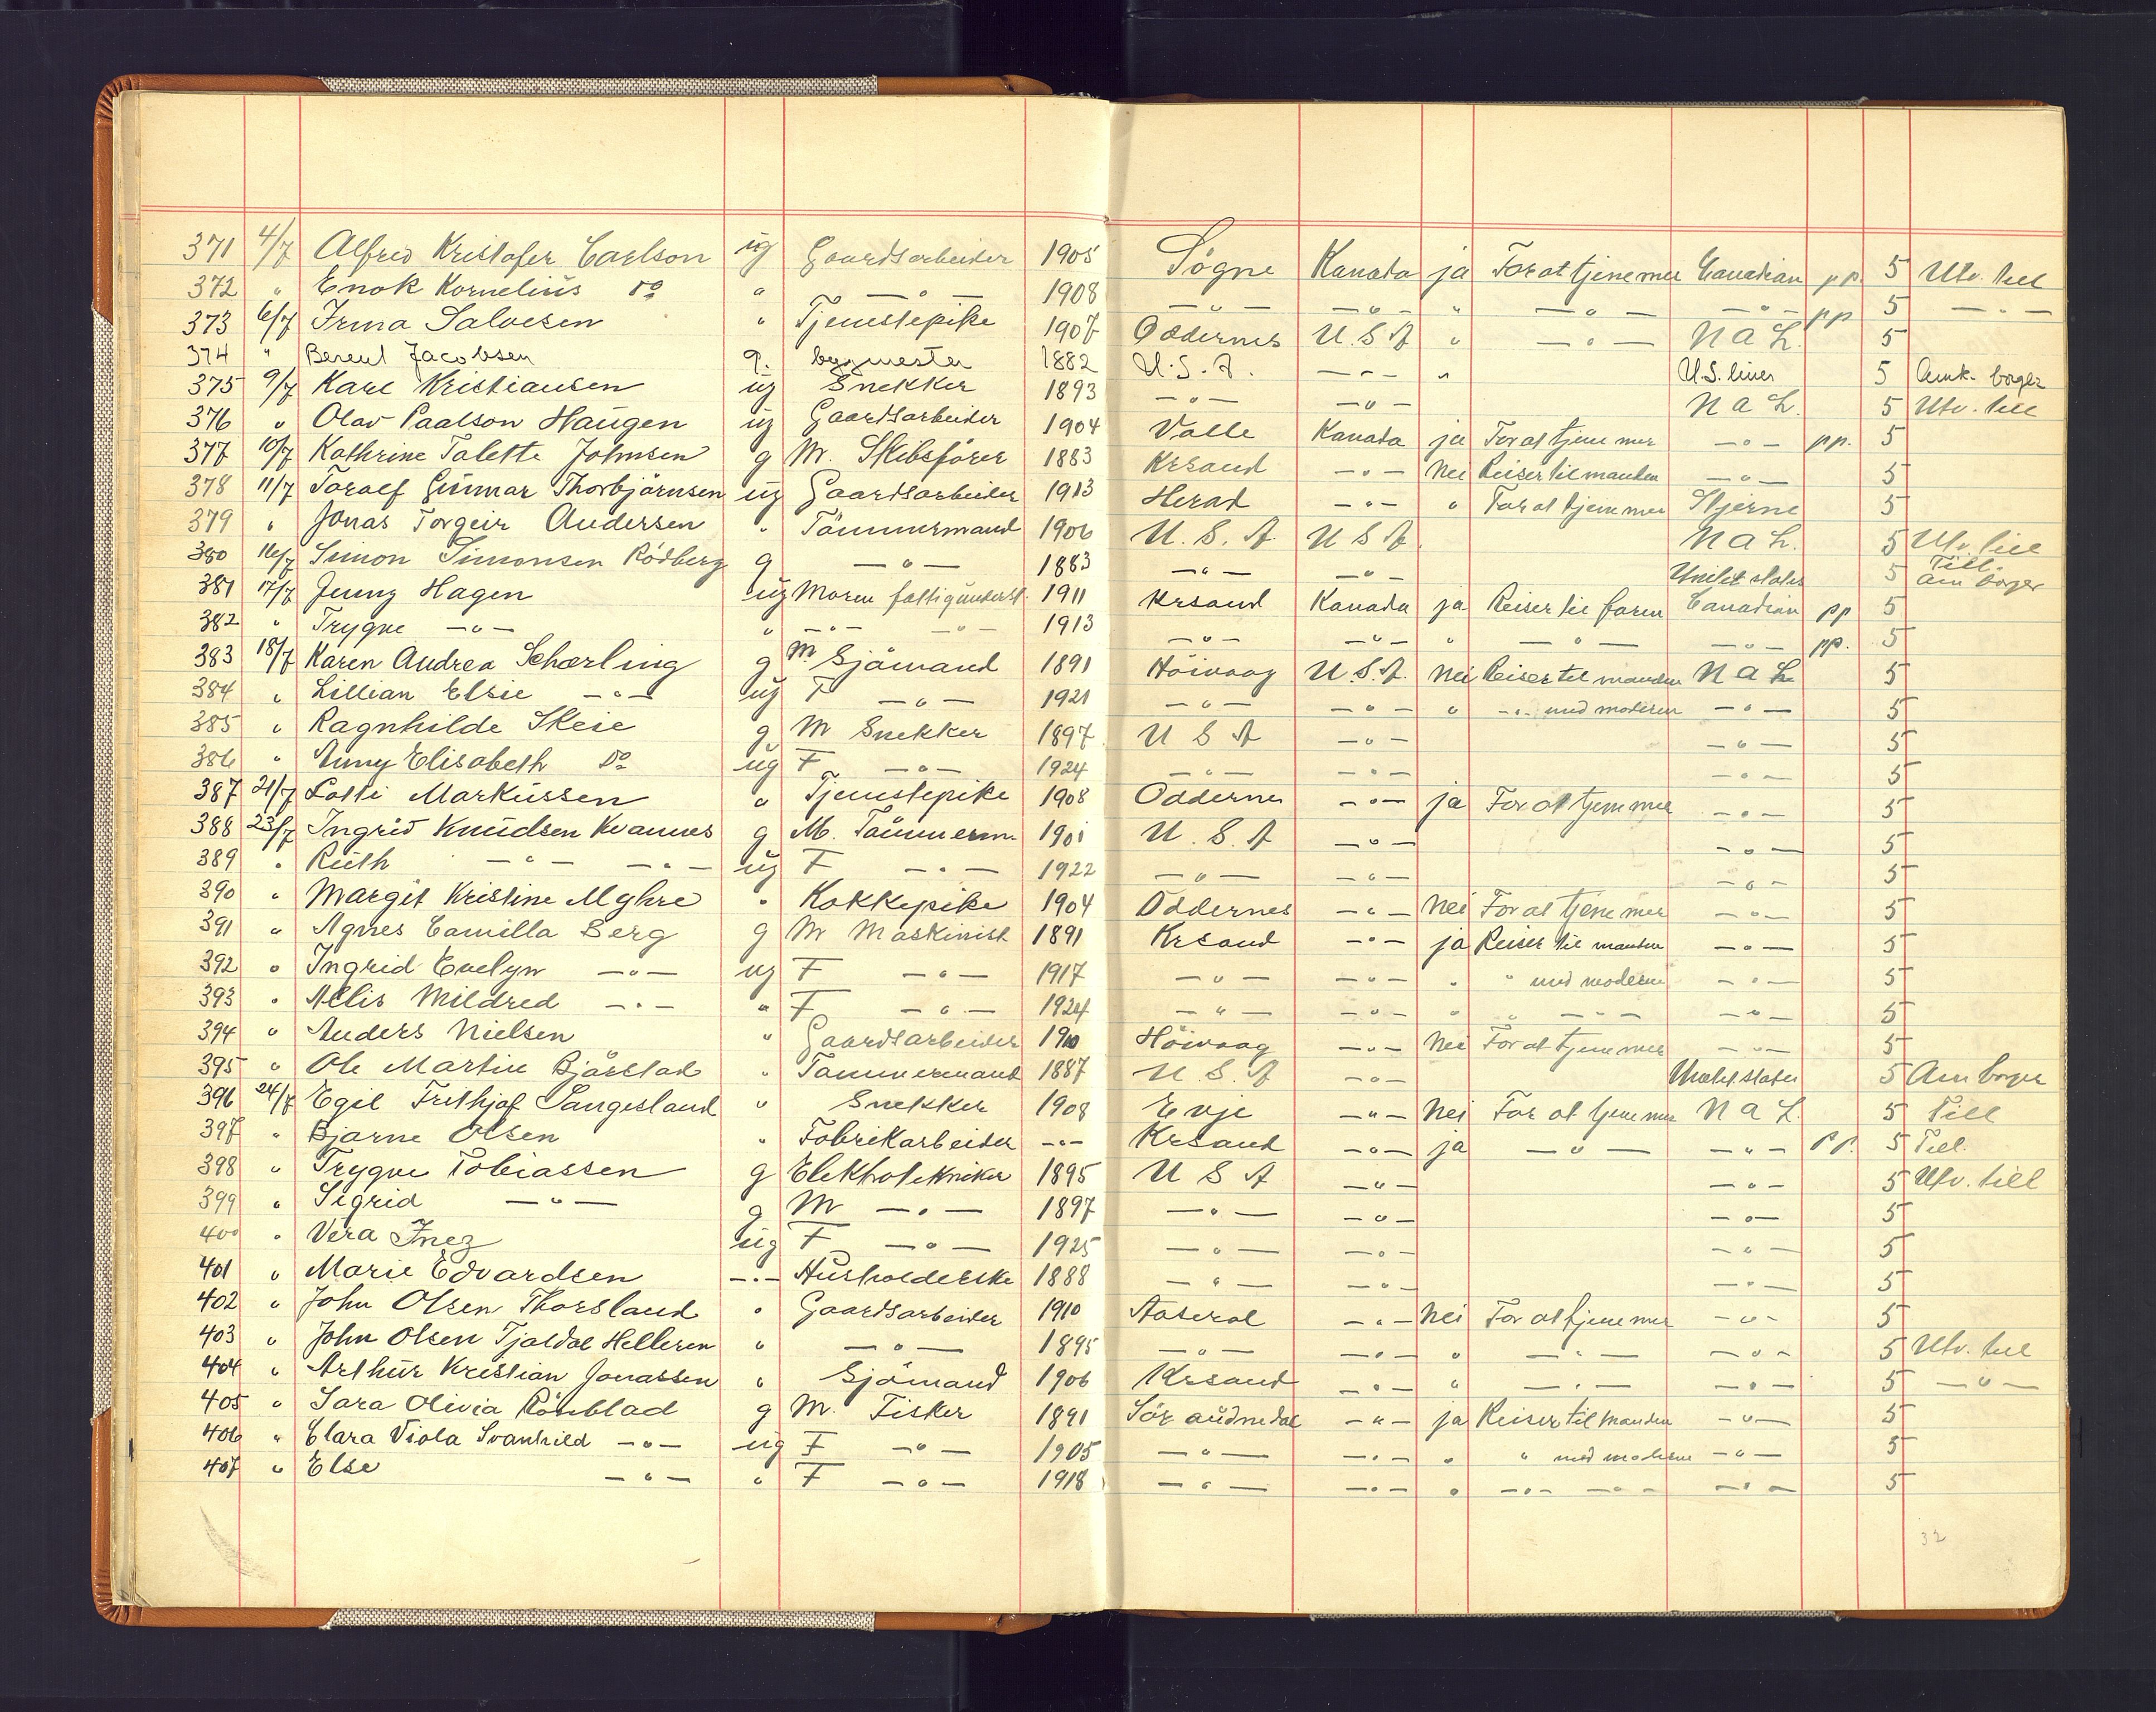 371 4/7 Alfred Kristofer Carlson ug Gaardsarbeider 1905 Sögne Kanada ja For at tjene mer Canadian pp. 5 Utv. till
372 " Enok Kornelius do " — " — 1908 — " — — " — " — " — — " — pp 5 — " —
373 6/7 Irma Salvesen " Tjenstepike 1907 Oddernes U.S.A " — " — N a L. 5
374 " Berent Jacobsen g. bygmester 1882 U.S.A. — " — " U.S. lines 5 Amk. borger
375 9/7 Karl Kristiansen ug Snekker 1893 — " — — " — N a L. 5 Utv. till
376 " Olav Paalson Haugen ug Gaardsarbeider 1904 Valle Kanada ja For at tjene mer — " — pp. 5
377 10/7 Kathrine Talette Johnsen g M. Skibsförer 1883 Krsand — " — Nei Reiser til manden — " — 5
378 11/7 Toralf Gunnar Thorbjörnsen ug Gaardsarbeider 1913 Herad — " — " For at tjene mer Stjerne 5
379 " Jonas Torgeir Andersen " Tömmermand 1906 U.S.A. U S A N a L. 5 Utv. till
380 16/7 Simon Simonsen Rödberg g — " — 1883 — " — — " — Unitet states 5 Till. Am borger
381 17/7 Jenny Hagen ug Moren fattigunderst. 1911 Krsand Kanada ja Reiser til faren Canadian pp 5
382 " Trygve — " — " — " — — " — 1913 — " — — " — " — " — — " — pp. 5
383 18/7 Karen Andrea Schærling g M Sjömand 1891 Höivaag U.S.A. Nei Reiser til manden N a L 5
384 " Lillian Elsie — " — ug F — " — 1921 — " — — " — " — " — med moderen — " — 5
385 " Ragnhilde Skeie g M Snekker 1897 U S A — " — — " — 5
386 " Anny Elisabeth do ug F — " — 1924 — " — — " — — " — 5
387 21/7 Lotti Markussen " Tjenstepike 1908 Oddernes — " — ja For at tjene mer — " — 5
388 23/7 Ingrid Knudsen Kvannes g M. Tömmerm. 1901 U.S.A — " — — " — 5
389 " Ruth — " — — " — ug F — " — 1922 — " — — " — — " — 5
390 " Margit Kristine Myhre " Kokkepike 1904 Oddernes — " — Nei For at tjene mer — " — 5
391 " Agnes Camilla Berg g M Maskinist 1891 Krsand — " — ja Reiser til manden — " — 5
392 " Ingrid Evelyn — " — ug F — " — 1917 — " — — " — " " med moderen — " — 5
393 " Allis Mildred — " — " F — " — 1924 — " — — " — " " — " — — " — 5
394 " Anders Nielsen " Gaardsarbeider 1910 Höivaag — " — Nei For at tjene mer — " — 5
395 " Ole Martin Bjårstad " Tömmermand 1887 U.S.A — " — Unitet states 5 Am borger
396 24/7 Egil Frithjof Langesland " Snekker 1908 Evje — " — Nei For at tjene mer N a L. 5 Till
397 " Bjarne Olsen " Fabrikarbeider — " — Krsand — " — ja — " — — " — pp. 5 Till.
398 " Trygve Tobiassen g Elektrotekniker 1895 U S A — " — — " — 5 Utv. till
399 " Sigrid — " — g M — " — 1897 — " — — " — — " — 5
400 " Vera Inez ug F — " — 1925 — " — — " — — " — 5
401 " Marie Edvardsen — " — Husholderske 1888 — " — — " — — " — 5
402 " John Olsen Thorsland " Gaardsarbeider 1910 Aaseral — " — Nei For at tjene mer — " — 5
403 " John Olsen Tjaldal Helleren " — " — 1895 — " — — " — " — " — — " — 5 Utv. till
404 " Arthur Kristian Jonassen " Sjömand 1906 Krsand — " — " — " — — " — 5 — " —
405 " Sara Olivia Rönblad g M. Fisker 1891 Sör audnedal — " — ja Reiser til manden — " — 5
406 " Clara Viola Svanhild — " — ug F — " — 1905 — " — — " — " " med moderen — " — 5
407 " Else — " — " F — " — 1918 — " — — " — " — " — — " — — " — 5
32